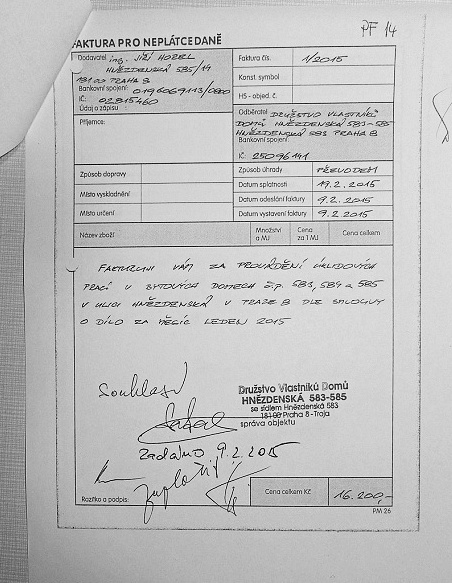 PF 14
FAKTURA PRO NEPLÁTCE DANĚ
Dodavatel ing. JIŘÍ HOREL
HNĚZDENSKÁ 585/14
181 00 PRAHA 8
Bankovní spojení: 0196069113/0800
IČ: 02815460
Údaj o zápisu:
Faktura čís. 1/2015
Konst. symbol
HS - objed. č.
Odběratel DRUŽSTVO VLASTNÍKŮ
DOMŮ HNĚZDENSKÁ 583-585
HNĚZDENSKÁ 583 PRAHA 8
Bankovní spojení:
IČ: 25096141
Příjemce:
Způsob dopravy
Místo vyskladnění
Místo určení
Způsob úhrady PŘEVODEM
Datum splatnosti 19.2.2015
Datum odeslání faktury 9.2.2015
Datum vystavení faktury 9.2.2015
Název zboží
Množství a MJ
Cena za 1 MJ
Cena celkem
FAKTURUJI VÁM ZA PROVÁDĚNÍ ÚKLIDOVÝCH
PRACÍ V BYTOVÝCH DOMECH č.p. 583, 584 a 585
V ULICI HNĚZDENSKÁ V PRAZE 8 DLE SMLOUVY
O DÍLO ZA MĚSÍC LEDEN 2015
Souhlasí
Družstvo Vlastníků Domů
HNĚZDENSKÁ 583-585
se sídlem Hnězdenská 583
181 00 Praha 8 - Troja
správa objektu
Zadáno 9.2.2015
Razítko a podpis:
Cena celkem Kč 16.200,-
PM 26